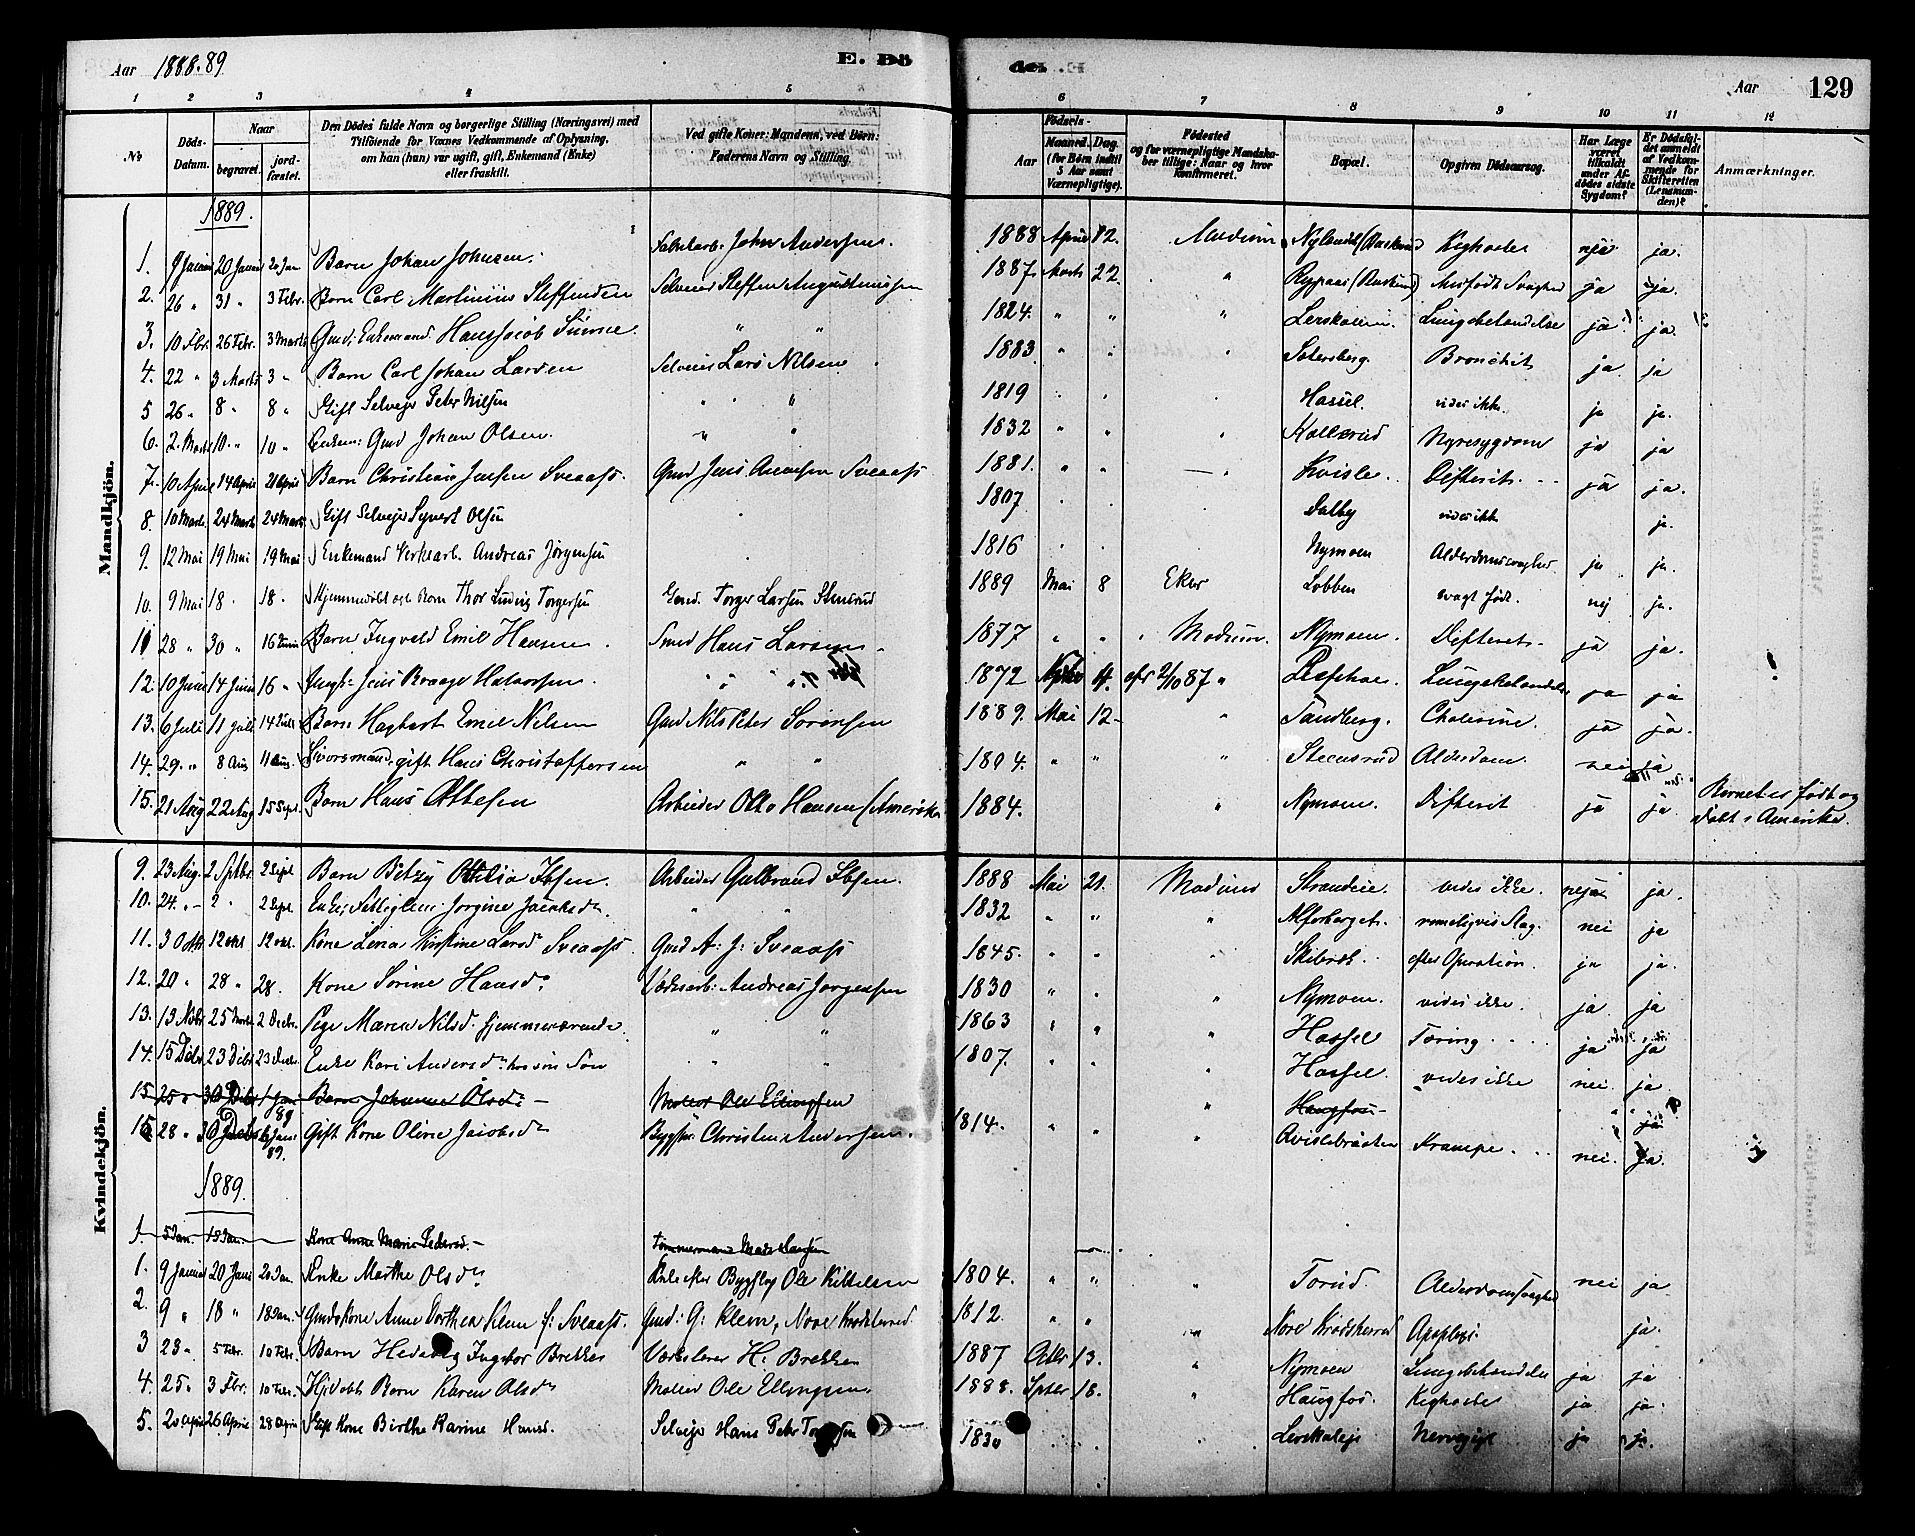 Aar 1888-89 E. Dö
den. E. Aar 129
1 2 3 4 5 6 7 8 9 10 11 12
No Döds-Datum. Naar begravet. jordfæstet. Den Dödes fulde Navn og borgerlige Stilling (Næringsvei) med Tilföiende for Voxnes Vedkommende af Oplysning, om han (hun) var ugift, gift, Enkemand (Enke) eller fraskilt. Ved gifte Koner: Mandens, ved Börn: Faderens Navn og Stilling. Födsels- Aar Maaned. Dag. (for Börn indtil 5 Aar samt Værnepligtige). Födested og for værnepligtige Mandskaber tillige: Naar og hvor konfirmeret. Bopæl. Opgiven Dödsaarsag. Har Læge været tilkaldt under Afdödes sidste Sygdom? Er Dödsfaldet anmeldt af Vedkommende for Skifteretten (Lensmanden)? Anmærkninger.
Mandkjön.
1889.
1. 9 Januar 20 Januar 20 Jan Barn Johan Johnsen. John Andersen. 1888 April 12. Modum ja.
2. 26 " 31 " 3 Febr. Barn Carl Martinius Steffensen Selveier Steffen Augustinussen 1887 Marts 22. " Medfødt Svaghed ja ja.
3. 10 Fbr. 26 Febr. 3 Marts Gmd, Enkemand Hans Jacob " " 1824. " " " Lerskallen. Lungebetændelse ja ja.
4. 22 " 3 Marts 3 " Barn Carl Johan Larsen Selveier Lars Nilsen 1883 " " " Bronchit ja ja
5 26 " 8 " 8 " Gift Selveier Peter Nilsen " " 1819 Hassel. vides ikke. ja ja.
6. 2. Marts 10. " 10 " Gmd Johan Olsen. " " 1832 Kollsrud Nyresygdom ja ja
7. 10 April 14 April 21 April Barn Christian Jensen Sveaass. Gmd Jens Sveaass 1881. " " " Kvisle Difterit ja ja.
8. 10 Marts 24 Marts 24 Marts Gift Selveier Syvert Olsen 1807 Dalby vides ikke ja.
9. 12 Mai 19 Mai 19 Mai Enkemand Verksarb. Andreas Jørgensen 1816 Nymoen Alderdomssvaghed. ja ja.
10. 9 Mai 18 " 18. " Hjemmedøbt Barn Thor Ludvig Torgersen Gmd. Torger Larsen Stensrud 1889 Mai 8 Eker Lobben svagt født. nej ja.
11 28 " 30 " 16 Juni Barn Ingvald Emil Hansen. Smed Hans Larsen. 1877 " " Modum. Nymoen. Difterit. ja ja.
12. 10 Juni 14 Juni 16 " Jens Braage Halvorsen. " " 1872 4. 2/10 87 " Lungebetændelse ja ja
13. 6 Juli 11 Juli 14 Juli Barn Hagbart Emil Nilsen Gmd Nils Peter Sörensen 1889. Mai 12 " Tandberg. Cholerine. ja ja.
14. 29. " 8 Aug 11 Aug. gift Hans Christoffersen " " 1804. " " " Steensrud Alderdom. nei ja
15. 21 Aug 22 Aug 15 Sept. Barn Hans Ottesen Arbeider Otto Hansen (Amerika 1884. " Nymoen. Difterit ja ja Barnet er født og døbt i Amerika.
Kvindekjön.
9. 23 Aug. 2 Sptbr. 2 Sept Barn Betzy Ottilia Ibsen. Arbeider Gulbrand Ibsen. 1888 Mai 21. Modum vides ikke. ja.
10. 24. " 2 " 2 Sept. Enke, Jorgine Jacobsdr. " " 1832 " " " rimeligvis Slag. nei ja
11. 3 Oktbr 12 okt 12 okt. Kone Lena Kirstine Larsdr Sveaass. Gmd A. J. Sveaass 1845. " " " efter Operation. ja ja.
12. 20 " 28 " 28. Kone Sörine Hansdr. Andreas Jørgensen 1830 " " " Nymoen. vides ikke. ja ja
13. 13 Novbr 25 Novbr 2 Decbr. Pige Maren Nilsd. hjemmeværende. " " 1863 " " " Hassel Tæring. ja ja
14. 15 Dcbr 23 Dcbr 23 Decbr. Enke Kari Andersdr hos sin Søn " " 1807. " " " Hassel. vides ikke nei ja.
15 25 " 30 Dcbr 1 Jan 89 Barn Johanne Olsdr. Möller Ole Ellingsen " Haugfos
15 28 " 30 Dcbr 6 Jan 89. Gift Kone Oline Jacobsdr Christen Andersen. 1814. " " " Krampe. nei. ja.
1889.
1. 5 Jan. 13 Jan. Kone Anne Marie Pedersd. Tømmermand Mads Hansen
1. 9 Januar 20 Janr 20 Jan. Enke Marthe Olsdr Ole Kittelsen 1804. " " " Torud. Alderdomssvaghed nei ja
2. 9 " 18 " 18 Jan. Gmdskone Anne Dorthea Klem f. Sveaass. Gmd: G: Klem, Nore Krødsherred. 1812. " " " Nore Krødsherred Apoplexi. ja.
3 23 " 5 Febr. 10 Febr. Barn Hedevig Ingebor Brekke H: Brekke 1887 Octbr 13. " Nymoen Lungebetændelse ja ja
4. 25 " 3 Fbr. 10 Febr. Hjdøbt Barn Karen Olsdr Möller Ole Ellingsen. 1888. Sptbr 18. " Haugfos. Kighoste ja ja.
5. 20 April 26 April 28 April Gift Kone Birthe Karine Hansd. Selveier Hans Peter 1830 Nervegigt ja ja.